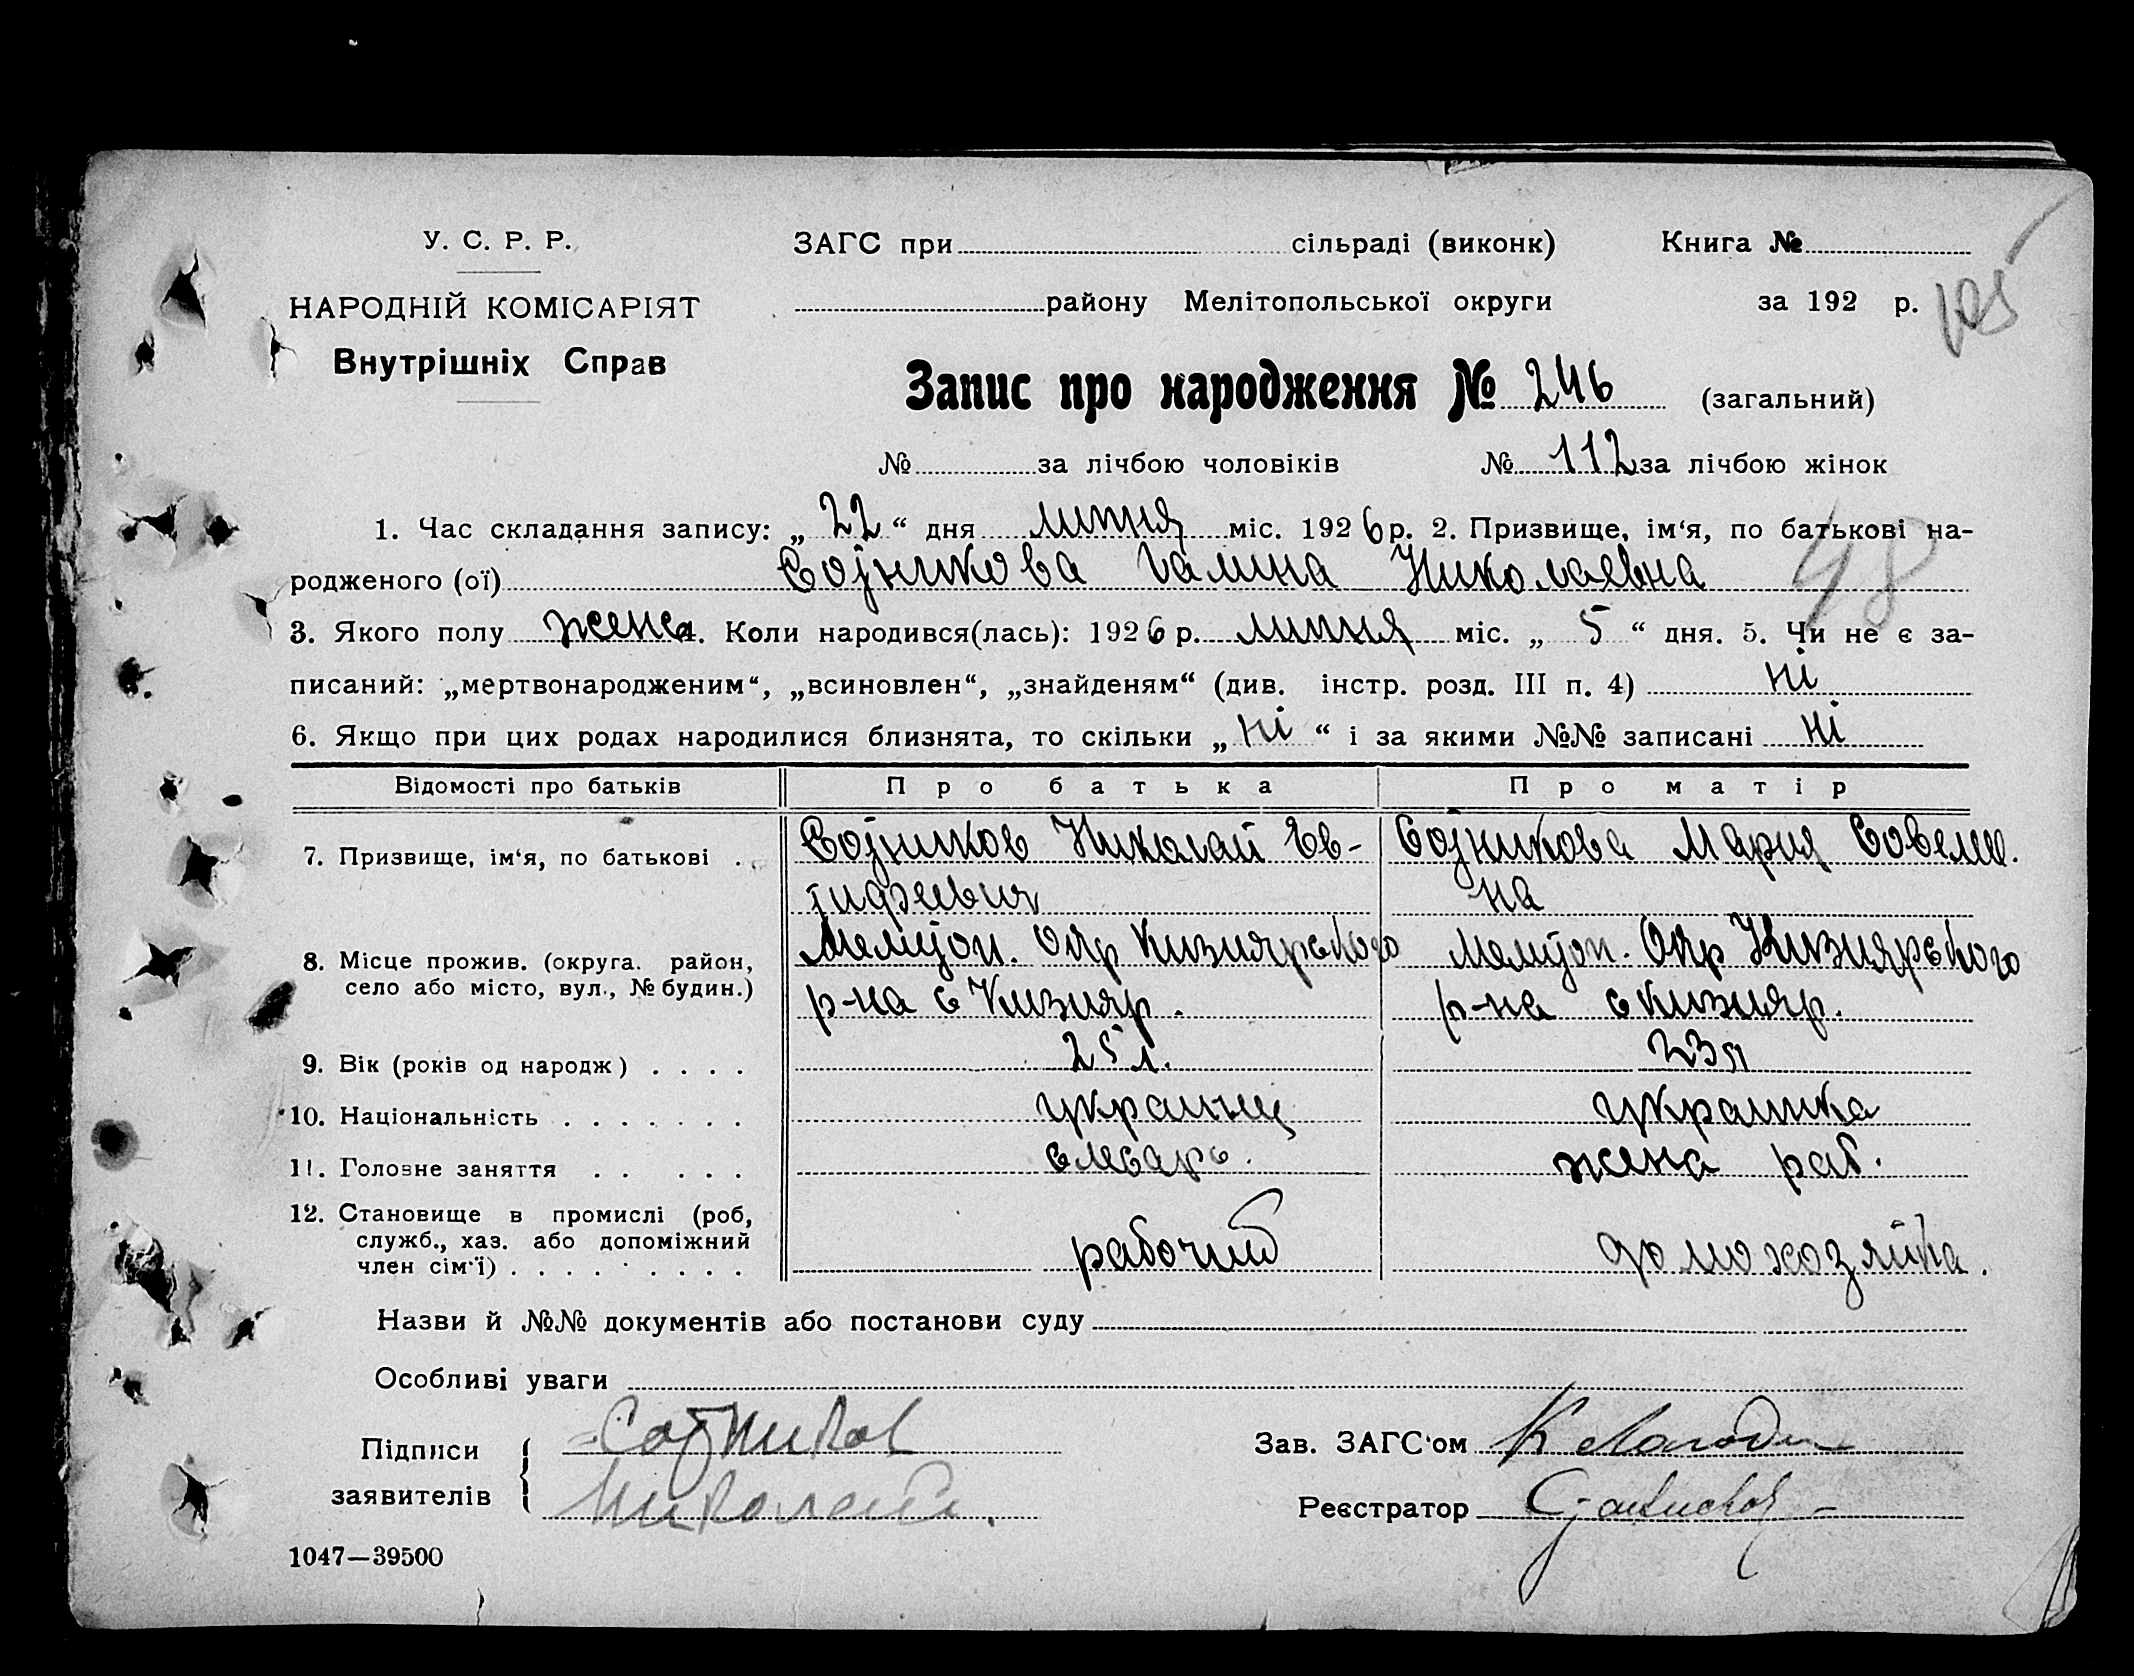 У. С. Р. Р.
НАРОДНІЙ КОМІСАРІЯТ
Внутрішніх Справ
ЗАГС при сільраді (виконк) Книга №
району Мелітопольської округи за 192 р.
105
Запис про народження № 246 (загальний)
№ за лічбою чоловіків № 112 за лічбою жінок
1. Час складання запису: „22“ дня липня міс. 1926 р. 2. Призвище, ім‘я, по батькові на-
родженого (ої) Сотникова Галина Николаевна
48
3. Якого полу жена. Коли народився(лась): 1926 р. липня міс. „5“ дня. 5. Чи не є за-
писаний: „мертвонародженим“, „всиновлен“, „знайденям“ (див. інстр. розд. III п. 4) ні
6. Якщо при цих родах народилися близнята, то скільки „ні“ і за якими №№ записані ні
Відомості про батьків Про батька Про матір
7. Призвище, ім‘я, по батькові . Сотников Николай Ев- Сотникова Мария Совели.
на
8. Місце прожив. (округа. район, Мелитоп. Окр Кизиярского Мелитоп. Окр Кизиярского
село або місто, вул., № будин.) р-на с Кизияр. р-на с Кизияр.
9. Вік (років од народж) . . . . 25 л. 23 л
10. Національність . . . . . . . украинец украинка
11. Головне заняття . . . . . слесарь. жена раб.
12. Становище в промислі (роб,
служб., хаз. або допоміжний рабочий домохозяйка.
член сім‘ї) . . . . . . . . .
Назви й №№ документів або постанови суду
Особливі уваги
Підписи Сотников Зав. ЗАГС‘ом
заявителів Николай. Реєстратор
1047—39500